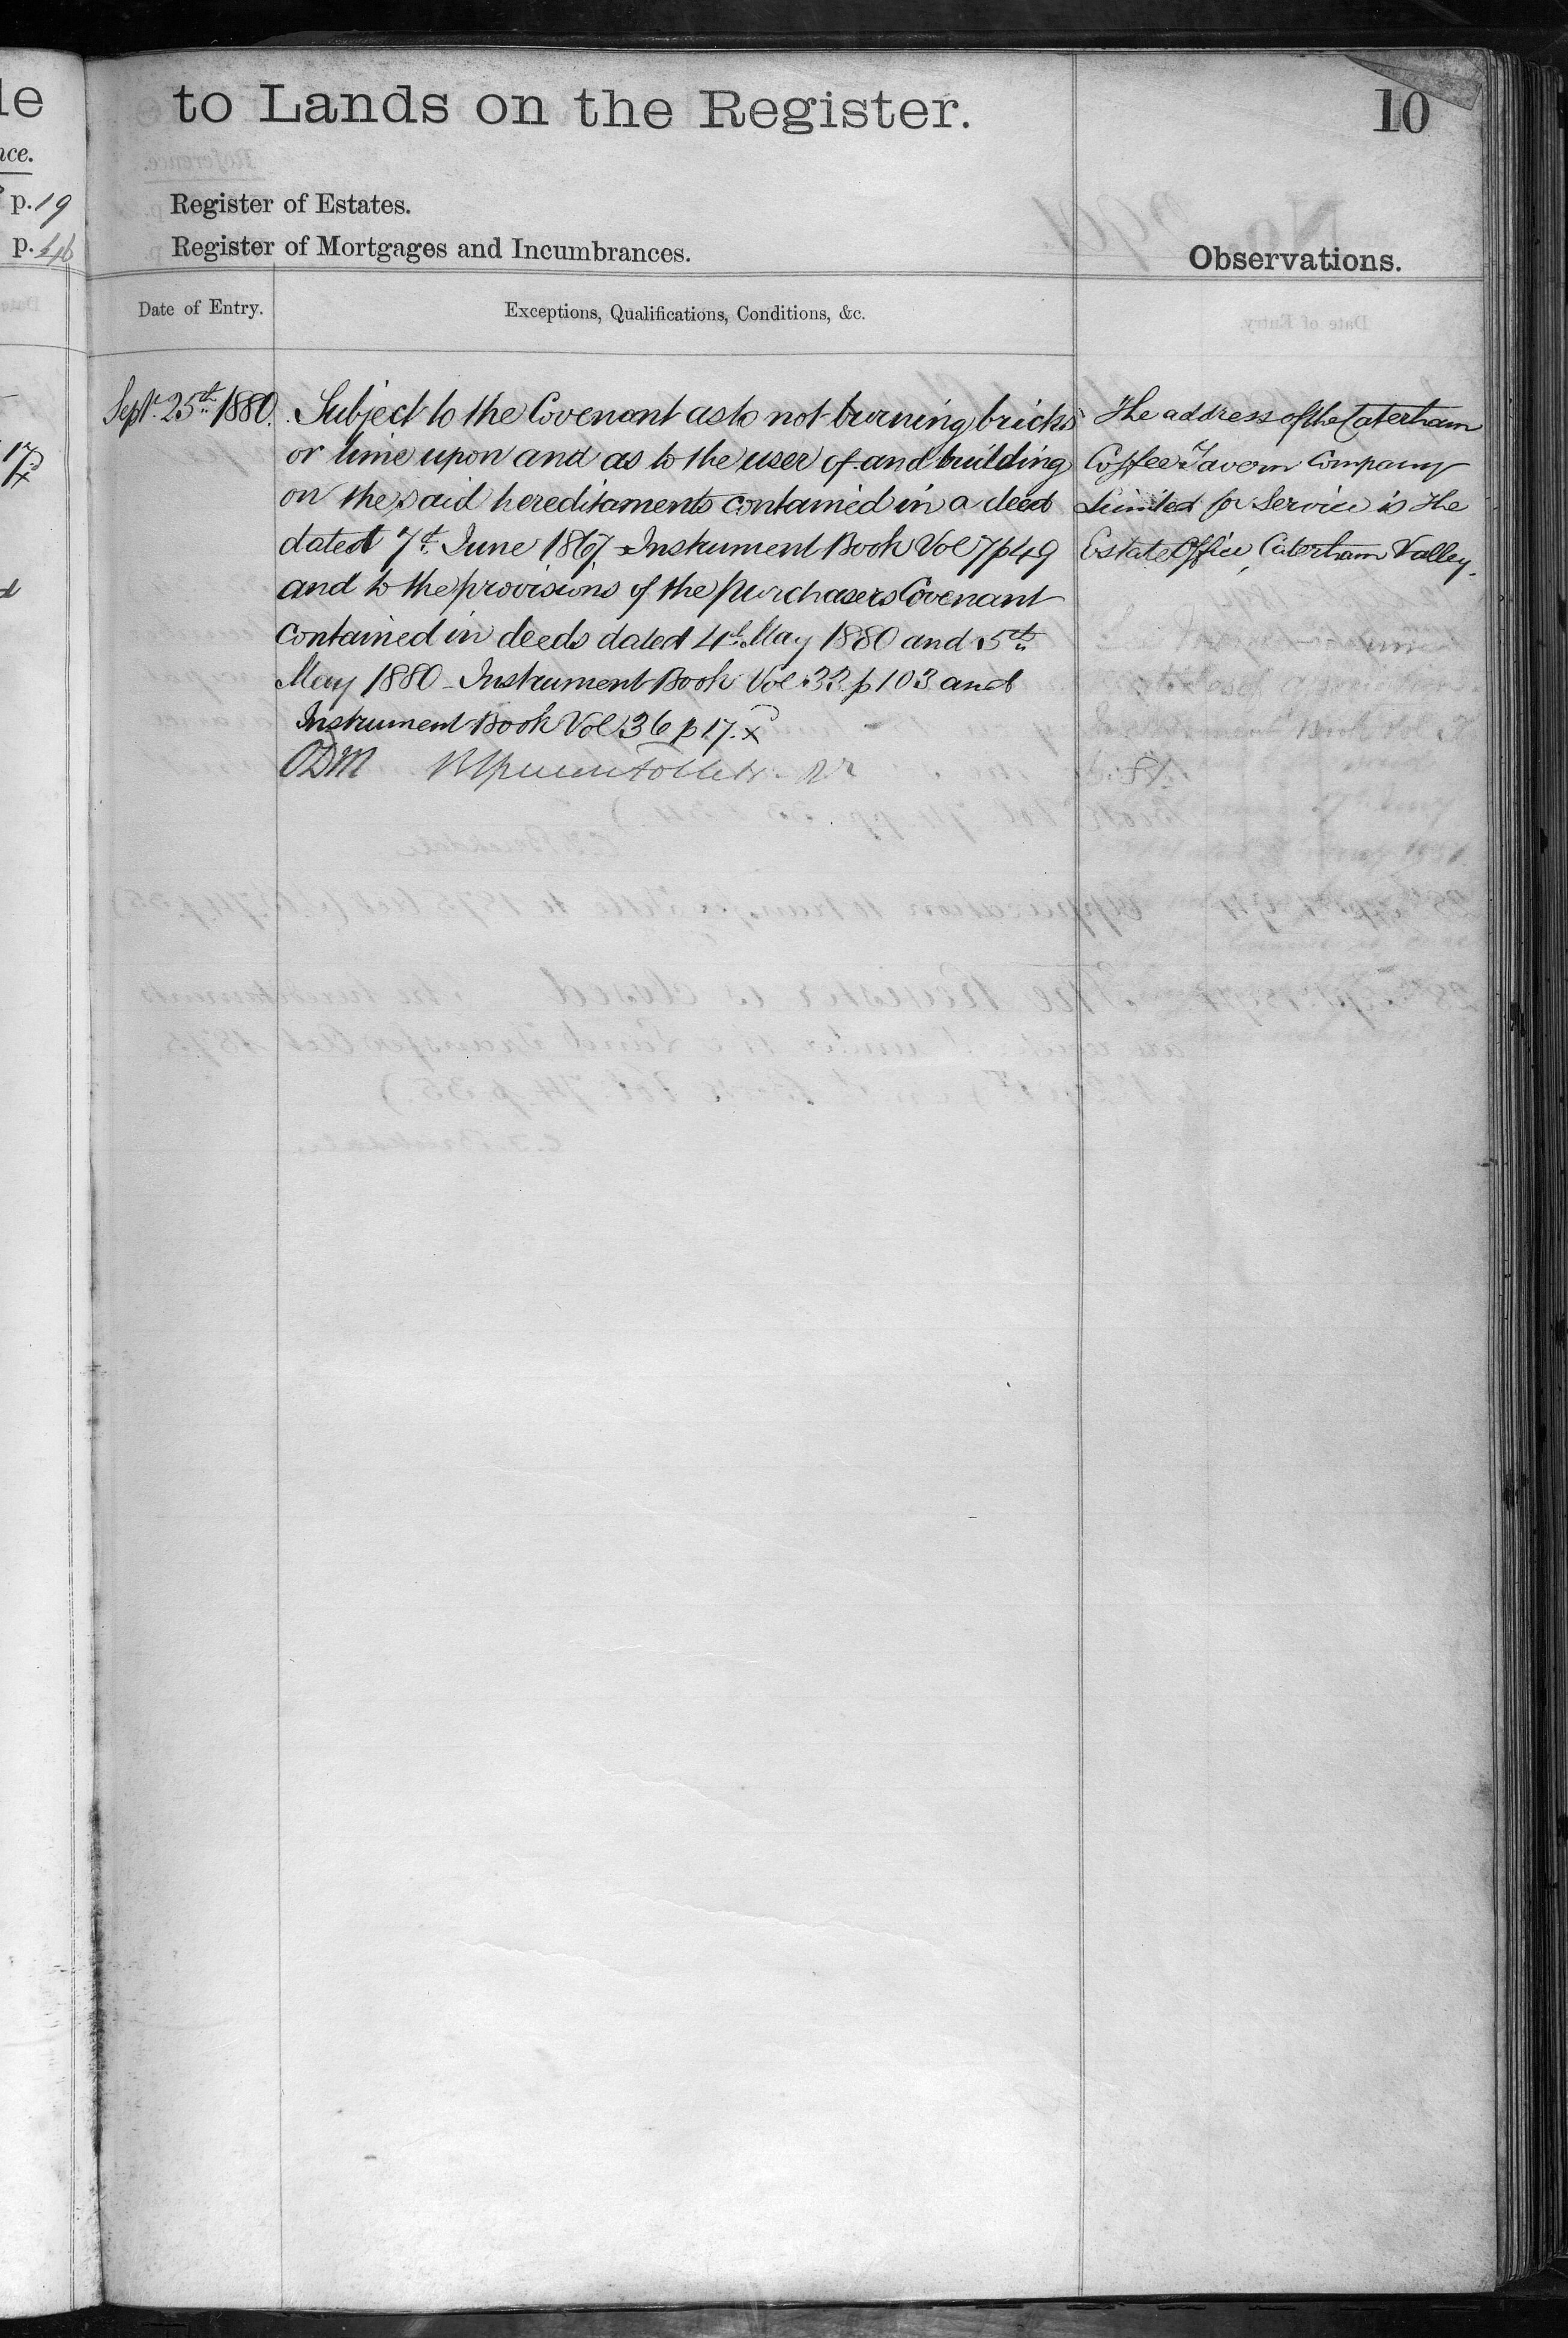 le
to Lands on the Register.
10
nce.
p. 19
Register of Estates.
p. 46
Register of Mortgages and Incumbrances.
Observations.
Date of Entry.
Exceptions, Qualifications, Conditions, &c.
Sept. 25th 1880.
Subject to the Covenant as to not burning bricks
or lime upon and as to the user of and building
on the said hereditaments contained in a deed
dated 7th June 1867 Instrument Book Vol 7 p 49
and to the provisions of the purchasers Covenant
contained in deeds dated 4th May 1880 and 5th
May 1880 - Instrument Book Vol 33 p 103 and
Instrument Book Vol 36 p 17. x
ODM
The address of the Caterham
Coffee Tavern Company
Limited for Service is The
Estate Office, Caterham Valley.